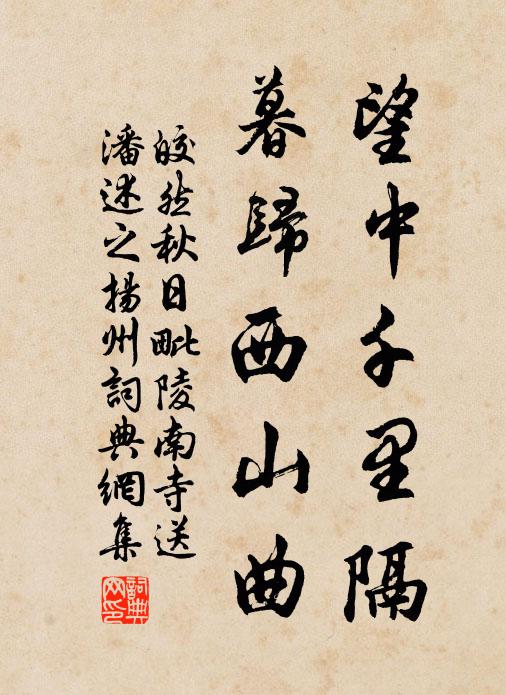 望中千里隔
暮歸西山曲
皎然秋日毗陵南寺送
潘述之揚州詞典網集
詞典網印